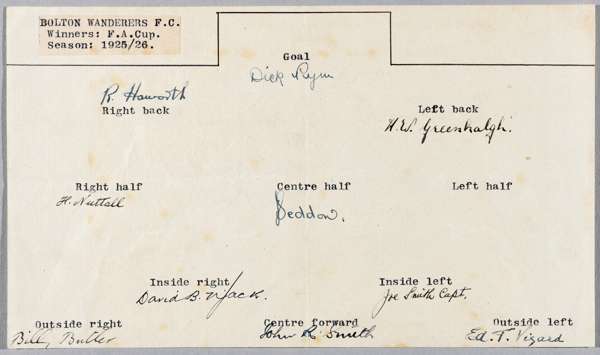 BOLTON WANDERERS F.C.
Winners: F.A.Cup.
Season: 1925/26.
Goal
Dick Pym
R. Haworth
Right back
Left back
H.W. Greenhalgh.
Right half
H. Nuttall
Centre half
Seddon.
Left half
Inside right
David B. N. Jack.
Inside left
Joe Smith Capt.
Outside right
Billy Butler
Centre forward
John R. Smith
Outside left
Ed. T. Vizard